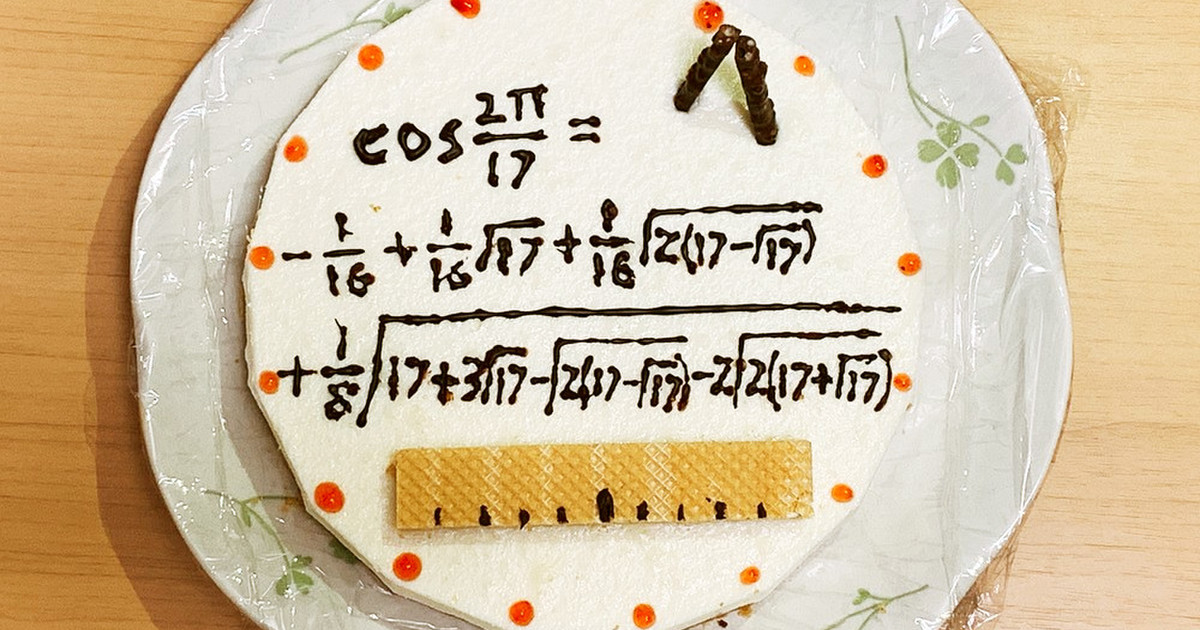 cos 2π/17 =
- 1/16 + 1/16 √17 + 1/16 √(2(17-√17))
+ 1/8 √(17+3√17-√(2(17-√17))-2√(2(17+√17)))